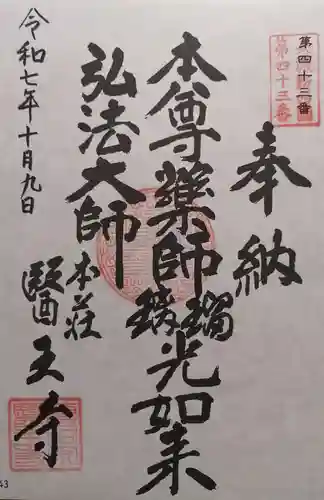 第四十三番
第四十三番
奉納
本尊薬師瑠璃光如来
弘法大師
本荘
醫王寺
令和七年十月九日
43